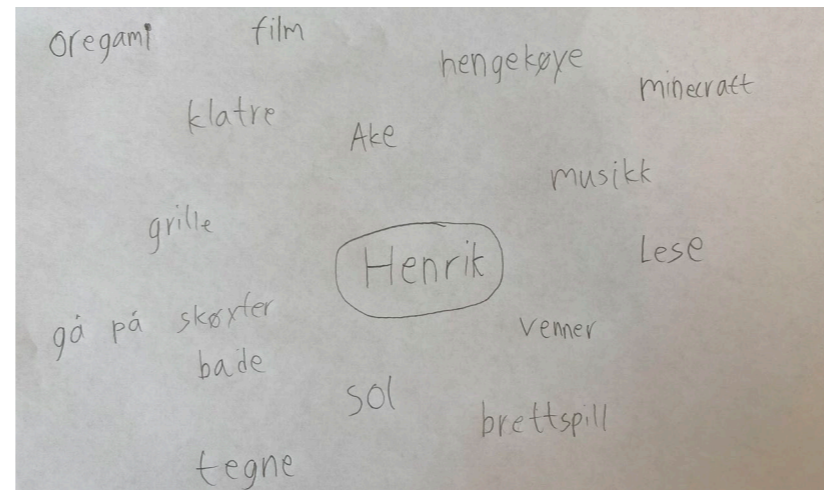 oregami film
hengekøye
minecraft
klatre
Ake
musikk
grille
Henrik
Lese
gå på skøyter
venner
bade
sol
brettspill
tegne